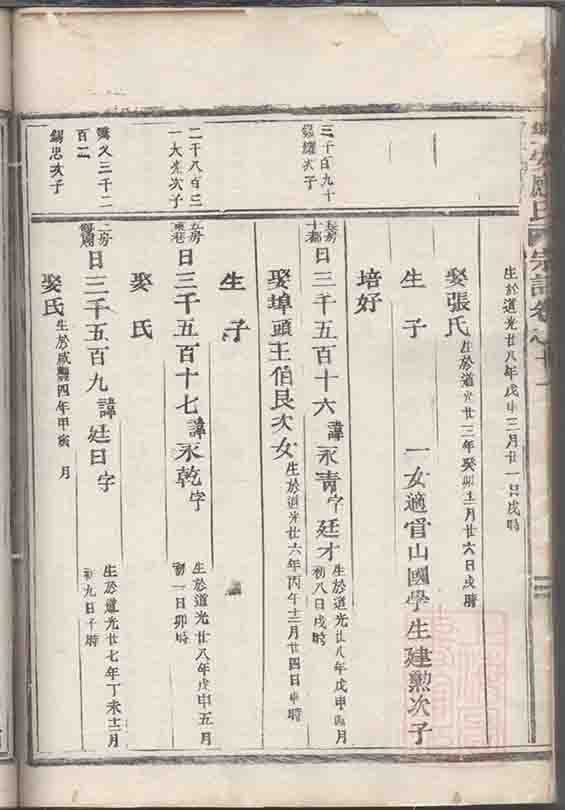 氏宗譜卷之十一
生於道光廿八年戊申三月廿一日戌時
娶張氏生於道光廿三年癸卯十二月廿六日戌時
生子 一女適官山國學生建勲次子
培好
三千百九十
銀耀次子
五房
十都
日三千五百十六諱永青字廷才生於道光廿八年戊申四月
初八日戌時
娶埠頭王伯良次女生於道光廿六年丙午十二月廿四日申時
生子
二千八百三
一大光次子
五房
日三千五百十七諱永乾字生於道光廿八年戊申五月
初一日卯時
娶氏
三千二
百二
錫忠次子
二房
日三千五百九諱廷日字生於道光廿七年丁未十二月
初九日午時
娶氏生於咸豐四年甲寅 月